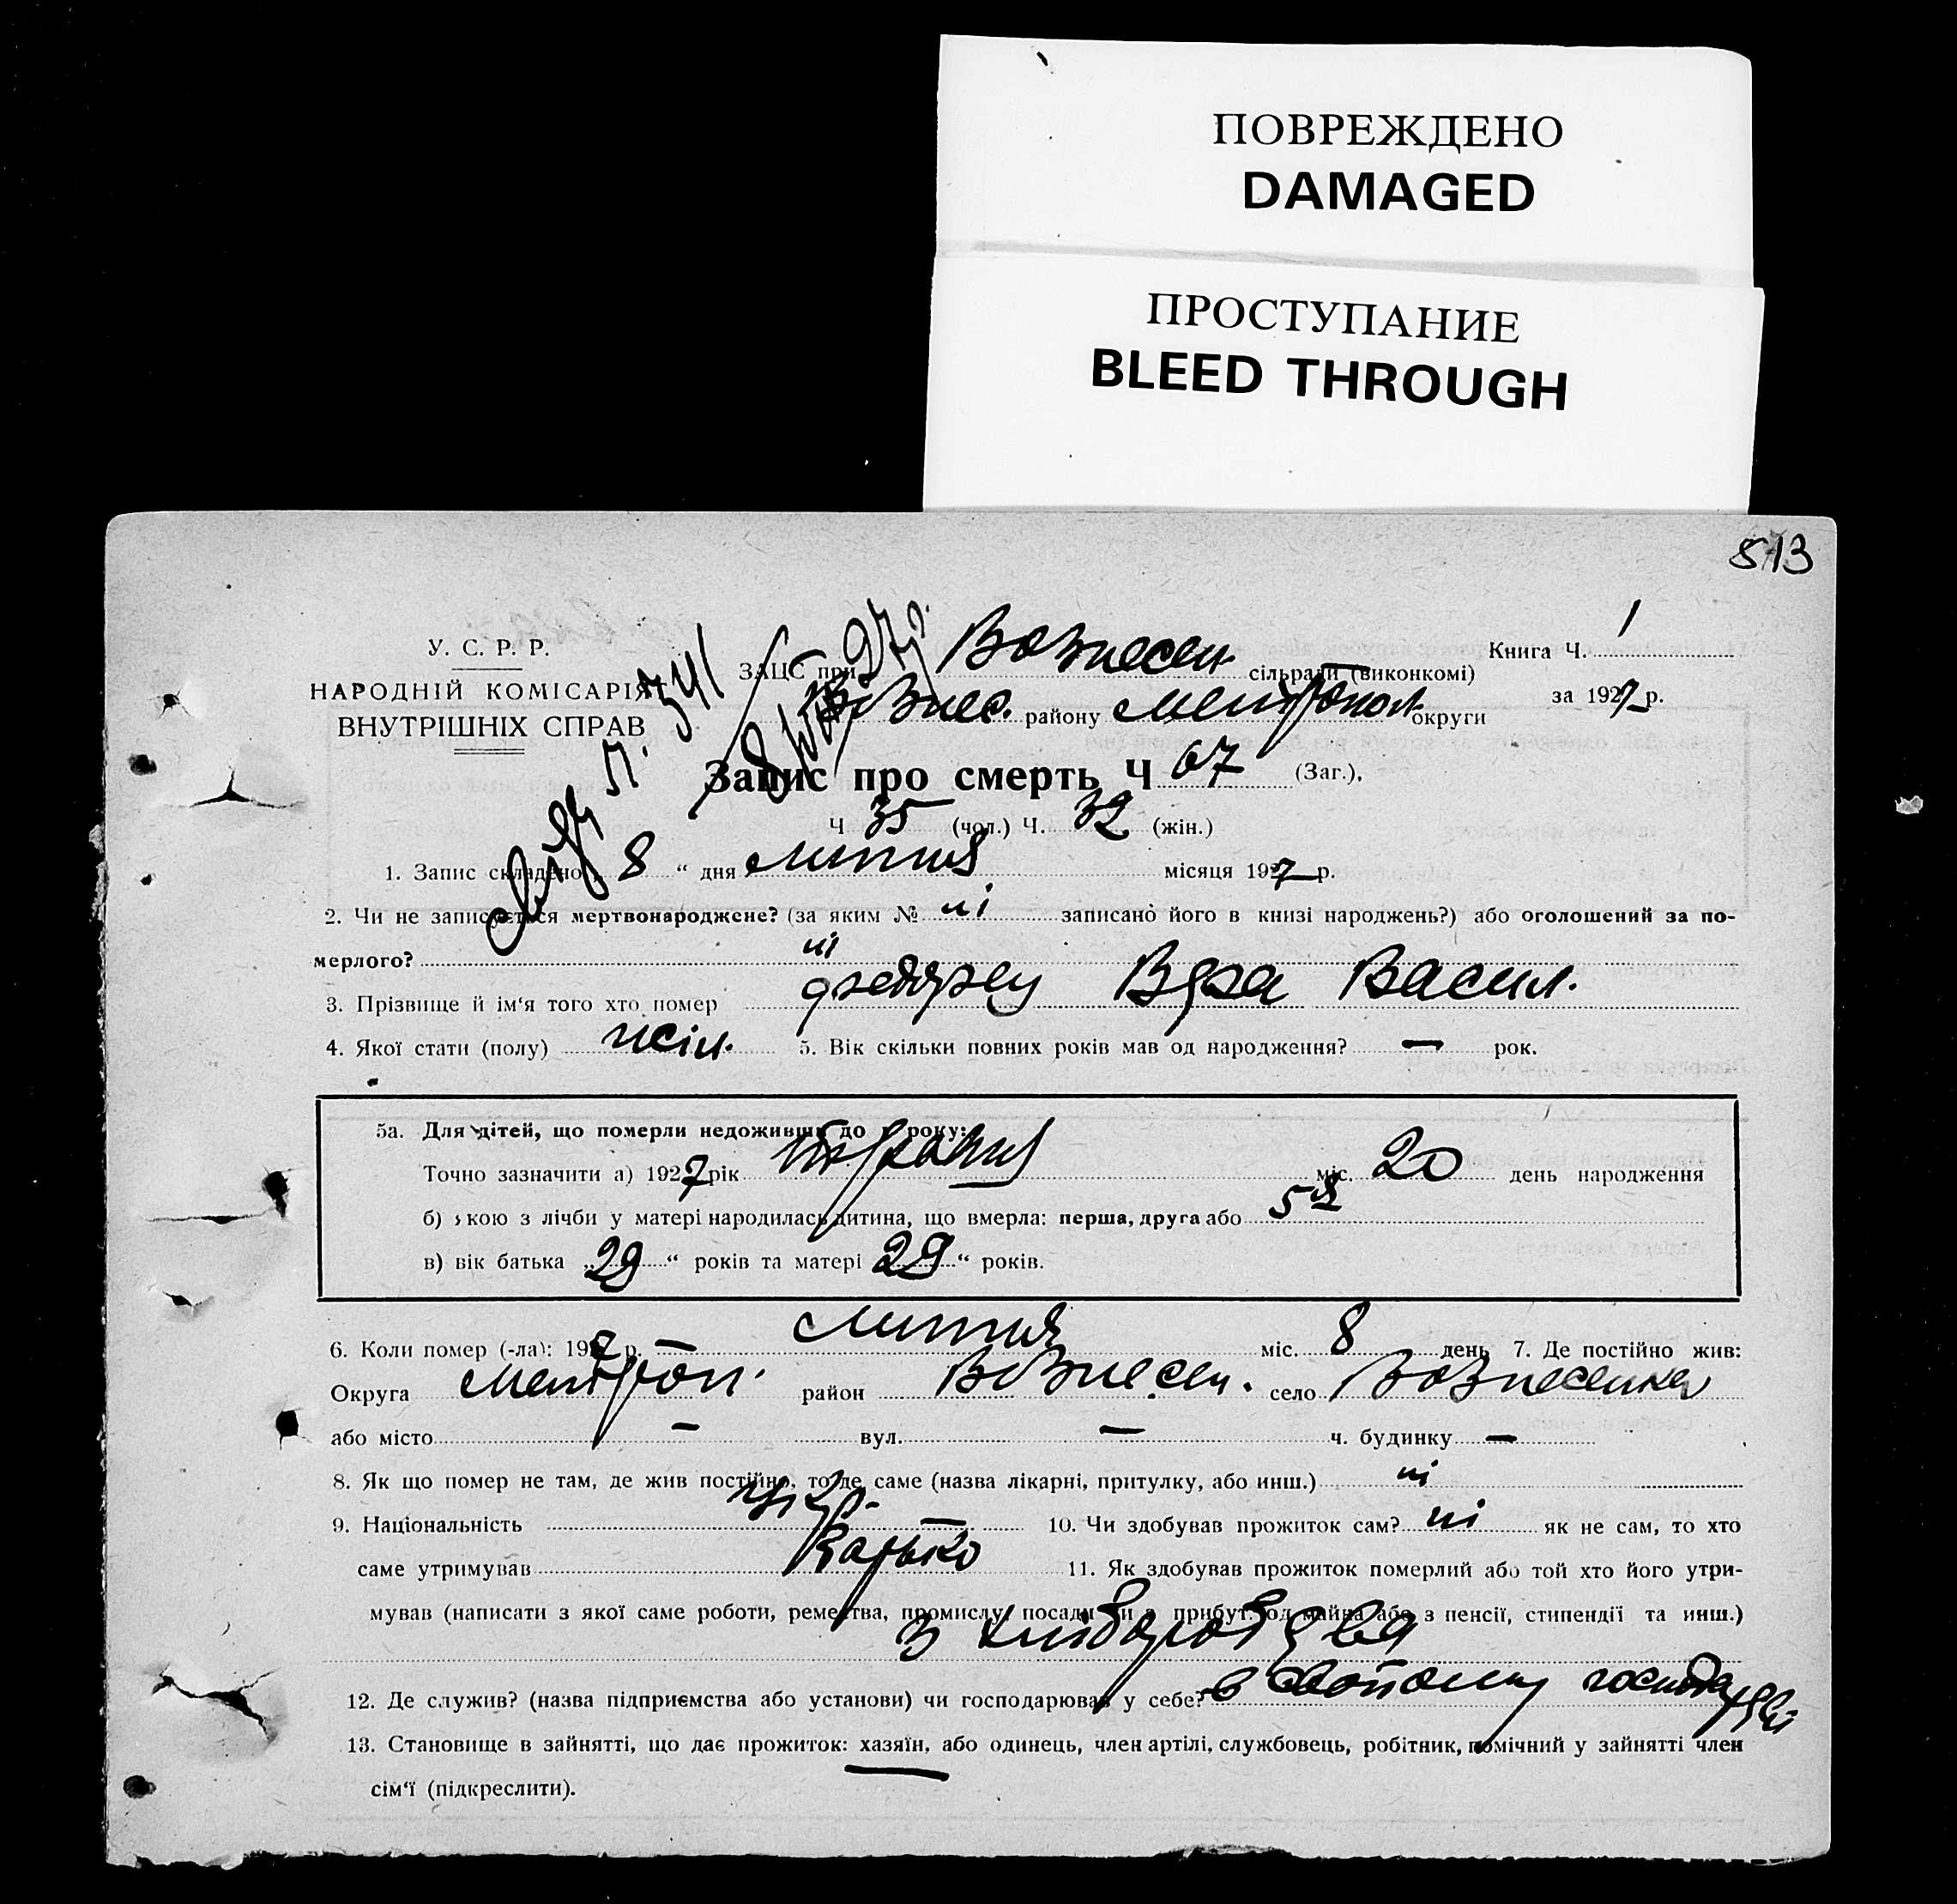 ПОВРЕЖДЕНО
DAMAGED
ПРОСТУПАНИЕ
BLEED THROUGH
513
У. С. Р. Р.
НАРОДНІЙ КОМІСАРІЯТ
ВНУТРІШНІХ СПРАВ
ЗАЦС при Вознесен. сільради (виконкомі)
Вознес. району Мелітопол. округи
Книга Ч. 1
за 1927 р.
Запис про смерть Ч 67 (Заг.).
Ч 35 (чол.) Ч. 32 (жін.)
1. Запис складено „ 8 “ дня липня місяця 1927 р.
2. Чи не записується мертвонароджене? (за яким № ні записано його в книзі народжень?) або оголошений за по-
мерлого? ні
3. Прізвище й ім‘я того хто помер Вера Васил.
4. Якої стати (полу) жін. 5. Вік скільки повних років мав од народження? — рок.
5а. Для дітей, що померли недоживши до 1 року:
Точно зазначити а) 1927 рік травня міс. 20 день народження
б) якою з лічби у матері народилась дитина, що вмерла: перша, друга або 5я
в) вік батька „ 29 “ років та матері 29 “ років.
6. Коли помер (-ла): 1927 р. — липня міс. 8 день 7. Де постійно жив:
Округа Мелітоп. район Вознесен. село Вознесенка
або місто — вул. — ч. будинку —
8. Як що помер не там, де жив постійно, то де саме (назва лікарні, притулку, або инш.) ні
9. Національність укр. 10. Чи здобував прожиток сам? ні як не сам, то хто
саме утримував батько 11. Як здобував прожиток померлий або той хто його утри-
мував (написати з якої саме роботи, ремества, промислу, посади чи з прибут. од майна або з пенсії, стипендії та инш.)
з хліборобства
12. Де служив? (назва підприємства або установи) чи господарював у себе? в своїому господарстві
13. Становище в зайнятті, що дає прожиток: хазяїн, або одинець, член артілі, службовець, робітник, помічний у зайнятті член
сім‘ї (підкреслити).